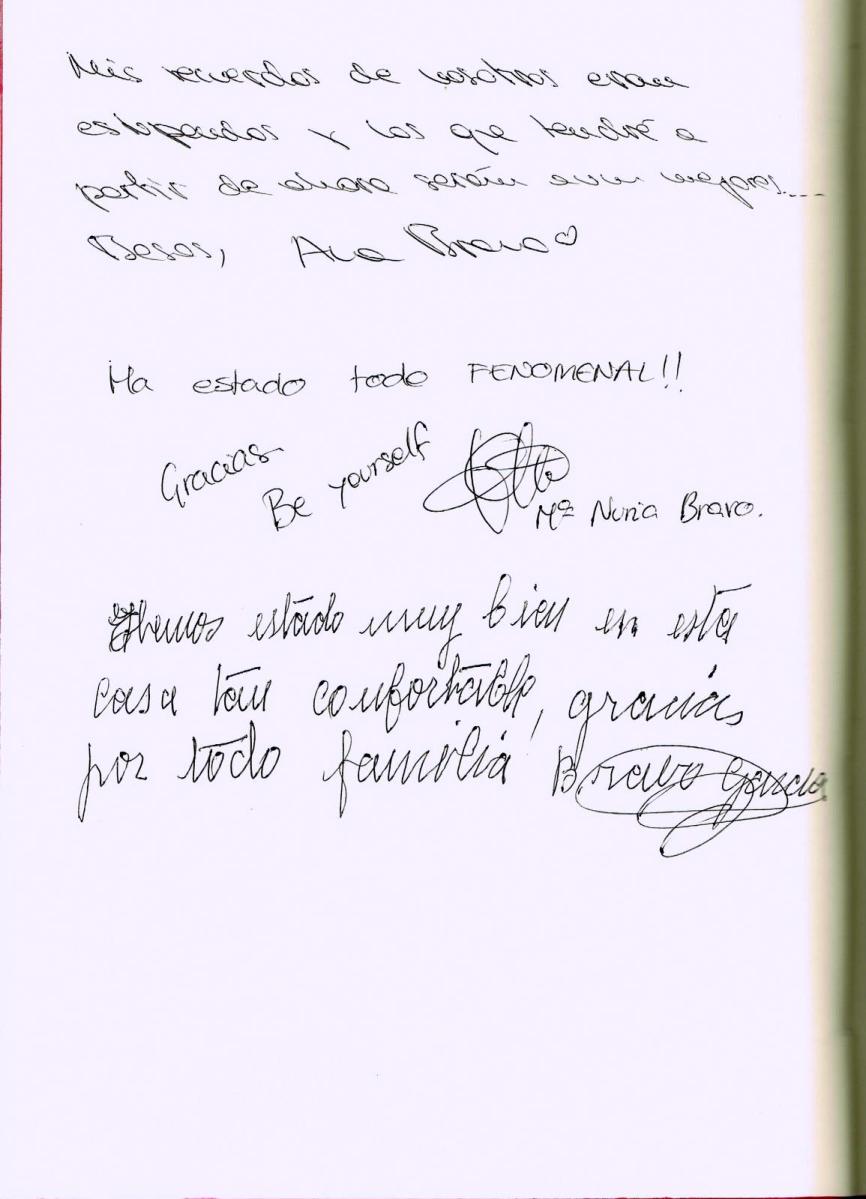 Mis recuerdos de vosotros eran
estupendos y los que tendré a
partir de ahora serán aun mejores....
Besos, Ana Bravo♡
Ha estado todo FENOMENAL!!
Gracias.
Be yourself
Mª Nuria Bravo.
Hemos estado muy bien en esta
casa tan comfortable, gracias
por todo familia Bravo Garcia